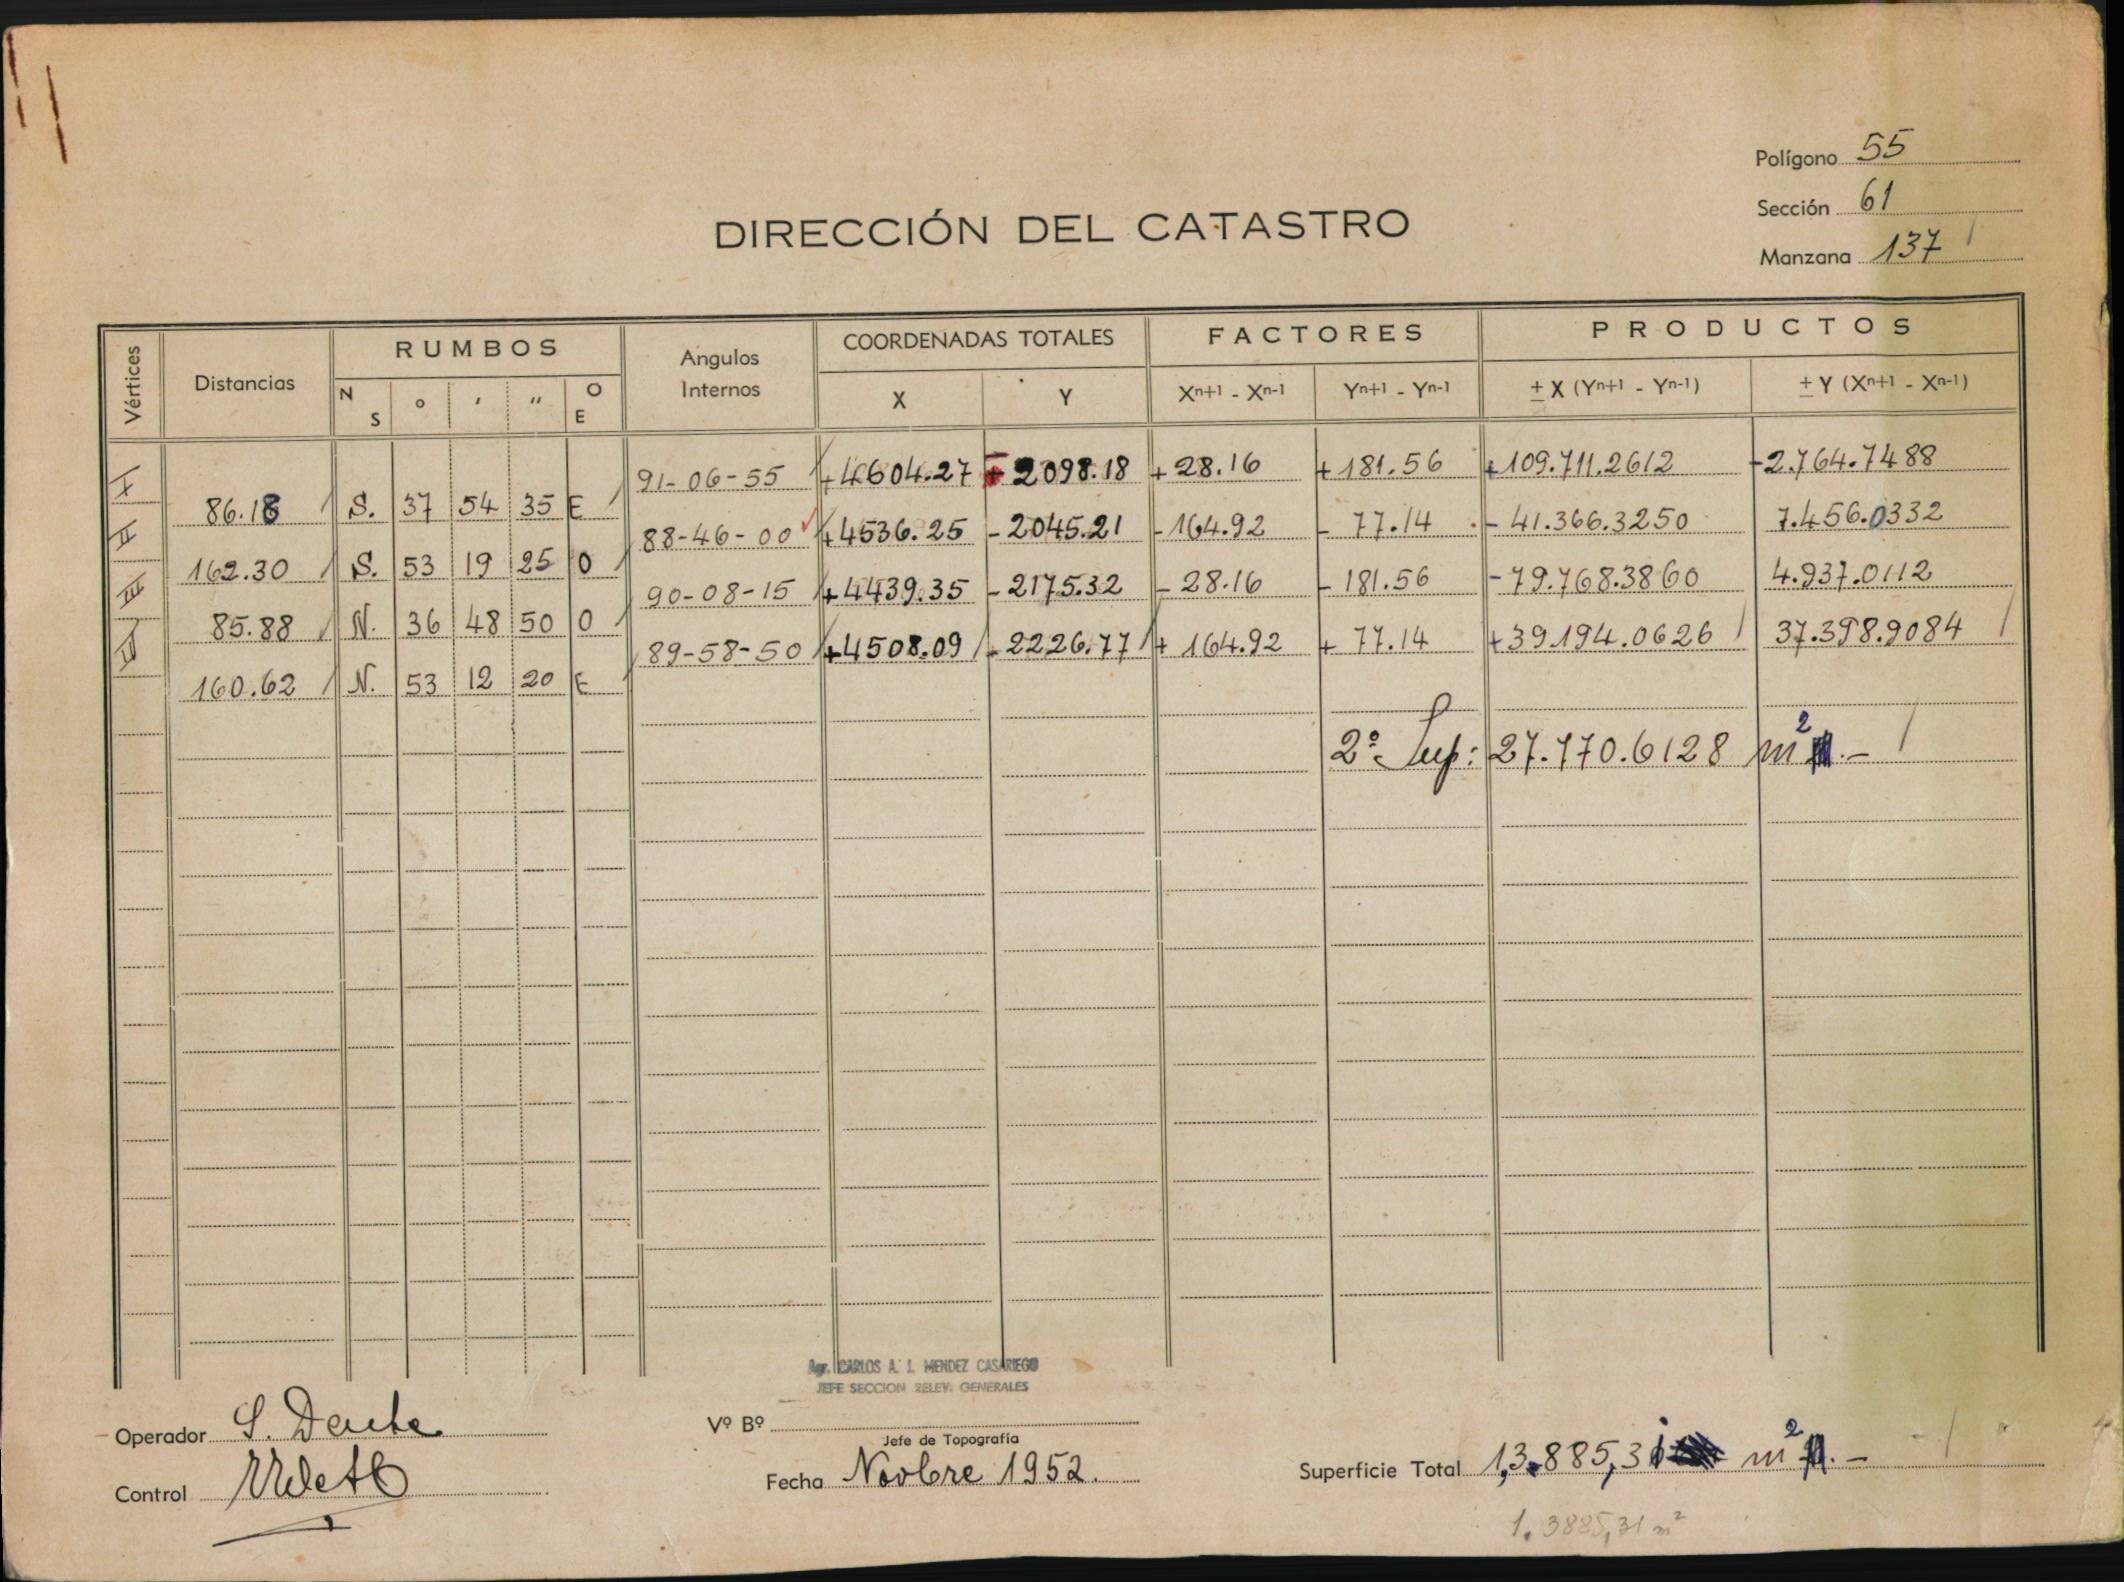 Polígono 55
Sección 61
Manzana 137
DIRECCIÓN DEL CATASTRO
Vértices Distancias RUMBOS Angulos Internos COORDENADAS TOTALES FACTORES PRODUCTOS
N S ° ' " O E X Y Xn+1 - Xn-1 Yn+1 - Yn-1 ± X (Yn+1 - Yn-1) ± Y (Xn+1 - Xn-1)
I 91-06-55 +4604.27 - 2098.18 +28.16 +181.56 +109.711.2612 -2.764.7488
86.18 S. 37 54 35 E
II 88-46-00 +4536.25 -2045.21 -164.92 - 77.14 - 41.366.3250 7.456.0332
162.30 S. 53 19 25 O
III 90-08-15 +4439.35 -2175.32 - 28.16 - 181.56 -79.768.3860 4.937.0112
85.88 N. 36 48 50 O
IV 89-58-50 +4508.09 -2226.77 + 164.92 + 77.14 +39.194.0626 37.398.9084
160.62 N. 53 12 20 E
2ª Sup: 27.770.6128 m2.-
Agr. CARLOS A. J. MENDEZ CASARIEGO
JEFE SECCION RELEV. GENERALES
Operador S. Dente
Vº Bº
Jefe de Topografía
Control
Fecha Novbre 1952.
Superficie Total 1,3.885,31 m2.-
1.3885,31 m2